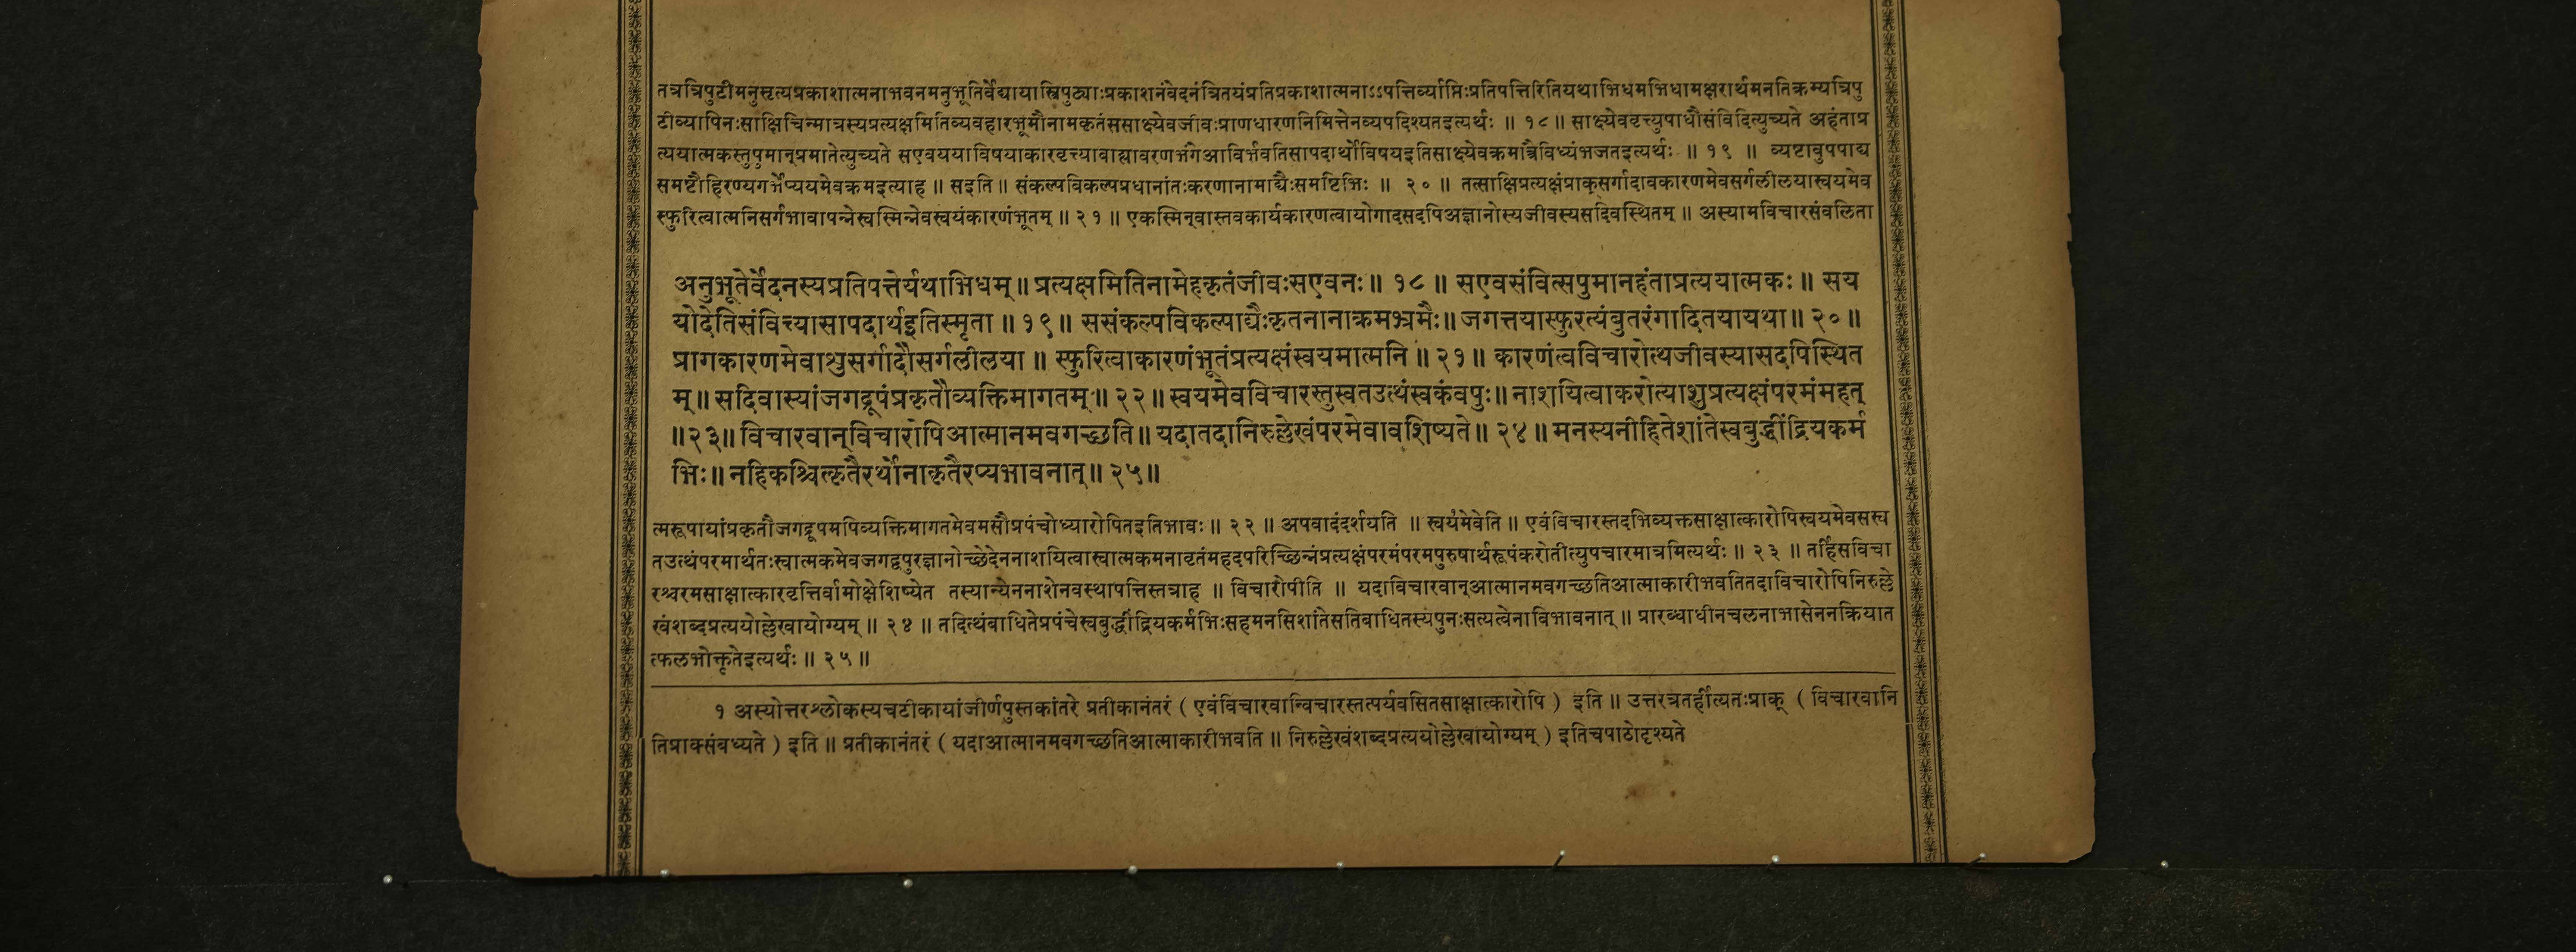 तत्रत्रिपुटीमनुसृत्यप्रकाशात्मनाभवनमनुभूतिर्वेद्यायास्त्रिपुट्याःप्रकाशनंवेदनंत्रितयंप्रतिप्रकाशात्मनाऽऽपत्तिर्व्याप्तिःप्रतिपत्तिरितियथाभिधमभिधामक्षरार्थमनतिक्रम्यत्रिपु
टीव्यापिनःसाक्षिचिन्मात्रस्यप्रत्यक्षमितिव्यवहारभूमौनामकृतंससाक्ष्येवजीवःप्राणधारणनिमित्तेनव्यपदिश्यतइत्यर्थः ॥ १८ ॥ साक्ष्येववृत्त्युपाधौसंविदित्युच्यते अहंताप्र
त्ययात्मकस्तुपुमान्प्रमातेत्युच्यते सएवययाविषयाकारवृत्त्यावाह्यावरणभंगेआविर्भवतिसापदार्थोविषयइतिसाक्ष्येवक्रमात्रैविध्यंभजतइत्यर्थः ॥ १९ ॥ व्यष्टावुपपाद्य
समष्टौहिरण्यगर्भेप्ययमेवक्रमइत्याह ॥ सइति ॥ संकल्पविकल्पप्रधानांतःकरणानामाद्यैःसमष्टिभिः ॥ २० ॥ तत्साक्षिप्रत्यक्षंप्राक्सर्गादावकारणमेवसर्गलीलयास्वयमेव
स्फुरित्वात्मनिसर्गभावापन्नेस्वस्मिन्नेवस्वयंकारणंभूतम् ॥ २१ ॥ एकस्मिन्वास्तवकार्यकारणत्वायोगादसदपिअज्ञानोस्यजीवस्यसदिवस्थितम् ॥ अस्यामविचारसंवलिता
अनुभूतेर्वेदनस्यप्रतिपत्तेर्यथाभिधम् ॥ प्रत्यक्षमितिनामेहकृतंजीवःसएवनः ॥ १८ ॥ सएवसंवित्सपुमानहंताप्रत्ययात्मकः ॥ सय
योदेतिसंवित्त्यासापदार्थइतिस्मृता ॥ १९ ॥ ससंकल्पविकल्पाद्यैःकृतनानाक्रमभ्रमैः ॥ जगत्तयास्फुरत्यंबुतरंगादितयायथा ॥ २० ॥
प्रागकारणमेवाशुसर्गादौसर्गलीलया ॥ स्फुरित्वाकारणंभूतंप्रत्यक्षंस्वयमात्मनि ॥ २१ ॥ कारणंत्वविचारोत्थजीवस्यासदपिस्थित
म् ॥ सदिवास्यांजगद्रूपंप्रकृतौव्यक्तिमागतम् ॥ २२ ॥ स्वयमेवविचारस्तुस्वतउत्थंस्वकंवपुः ॥ नाशयित्वाकरोत्याशुप्रत्यक्षंपरमंमहत्
॥ २३ ॥ विचारवान्विचारोपिआत्मानमवगच्छति ॥ यदातदानिरुल्लेखंपरमेवावशिष्यते ॥ २४ ॥ मनस्यनीहितेशांतेस्वबुद्धींद्रियकर्म
भिः ॥ नहिकश्चित्कृतैरर्थोनाकृतैरप्यभावनात् ॥ २५ ॥
त्मरूपायांप्रकृतौजगद्रूपमपिव्यक्तिमागतमेवमसौप्रपंचोध्यारोपितइतिभावः ॥ २२ ॥ अपवादंदर्शयति ॥ स्वयमेवेति ॥ एवंविचारस्तदभिव्यक्तसाक्षात्कारोपिस्वयमेवसस्व
तउत्थंपरमार्थतःस्वात्मकमेवजगद्वपुरज्ञानोच्छेदेननाशयित्वास्वात्मकमनावृतंमहदपरिच्छिन्नंप्रत्यक्षंपरमंपरमपुरुषार्थरूपंकरोतीत्युपचारमात्रमित्यर्थः ॥ २३ ॥ तर्हिसविचा
रश्चरमसाक्षात्कारवृत्तिर्वामोक्षेशिष्येत तस्यान्येननाशेनवस्थापत्तिस्तत्राह ॥ विचारोपीति ॥ यदाविचारवान्आत्मानमवगच्छतिआत्माकारीभवतितदाविचारोपिनिरुल्ले
खंशब्दप्रत्ययोल्लेखायोग्यम् ॥ २४ ॥ तदित्थंबाधितेप्रपंचेस्वबुद्धींद्रियकर्मभिःसहमनसिशांतेसतिबाधितस्यपुनःसत्यत्वेनाविभावनात् ॥ प्रारब्धाधीनचलनाभासेननक्रियात
त्फलभोक्तृतेइत्यर्थः ॥ २५ ॥
१ अस्योत्तरश्लोकस्यचटीकायांजीर्णपुस्तकांतरे प्रतीकानंतरं ( एवंविचारवान्विचारस्तत्पर्यवसितसाक्षात्कारोपि ) इति ॥ उत्तरत्रतर्हीत्यतःप्राक् ( विचारवानि
तिप्राक्संबध्यते ) इति ॥ प्रतीकानंतरं ( यदाआत्मानमवगच्छतिआत्माकारीभवति ॥ निरुल्लेखंशब्दप्रत्ययोल्लेखायोग्यम् ) इतिचपाठोदृश्यते